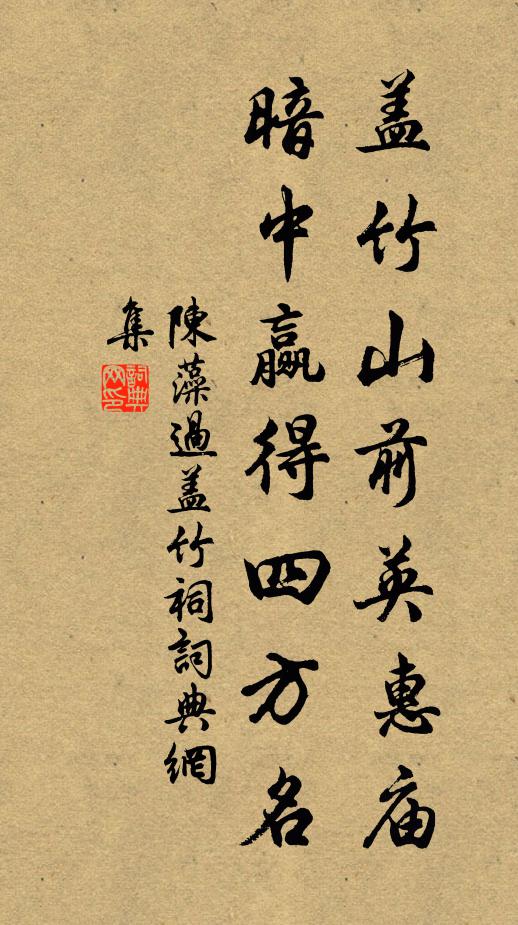 盖竹山前英惠庙
暗中贏得四方名
陳藻過盖竹祠詞典網
集
詞典
网印